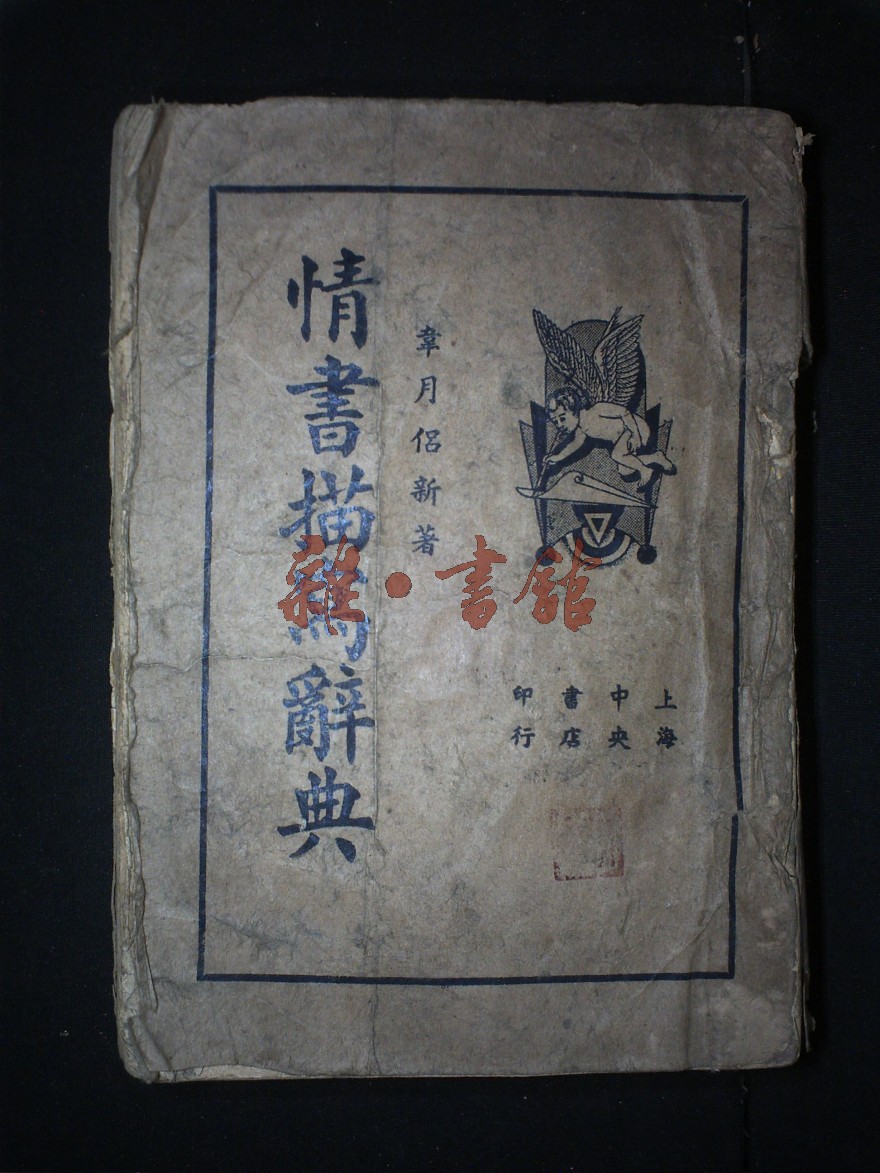 情書描寫辭典
韋月侶新著
上海
中央
書店
印行
雜·書舘